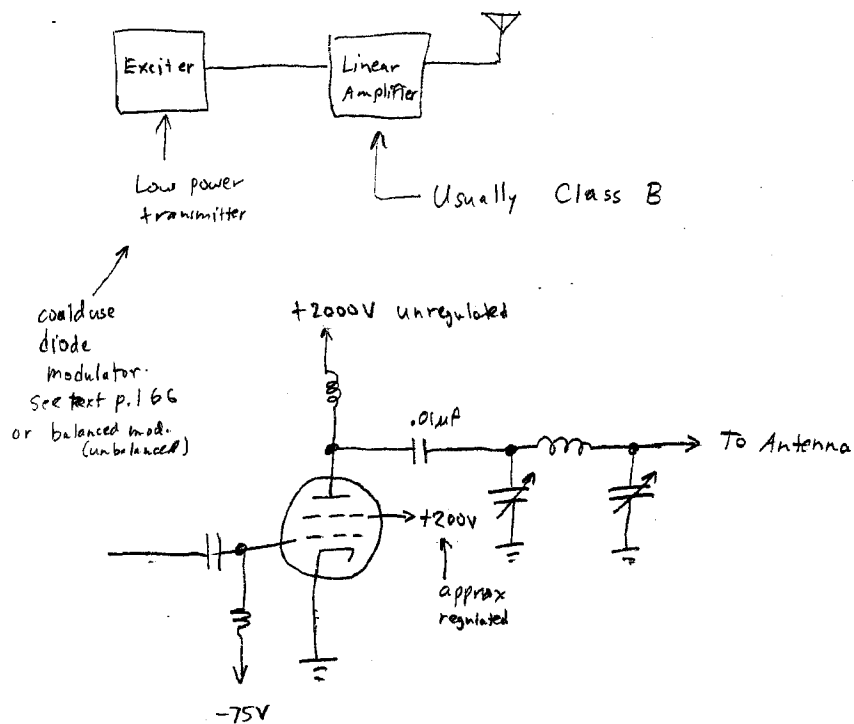 Exciter
Linear
Amplifier
Low power
transmitter
Usually Class B
could use
diode
modulator.
see text p.166
or balanced mod.
(unbalanced)
+2000V unregulated
.01μF
To Antenna
+200V
approx
regulated
-75V